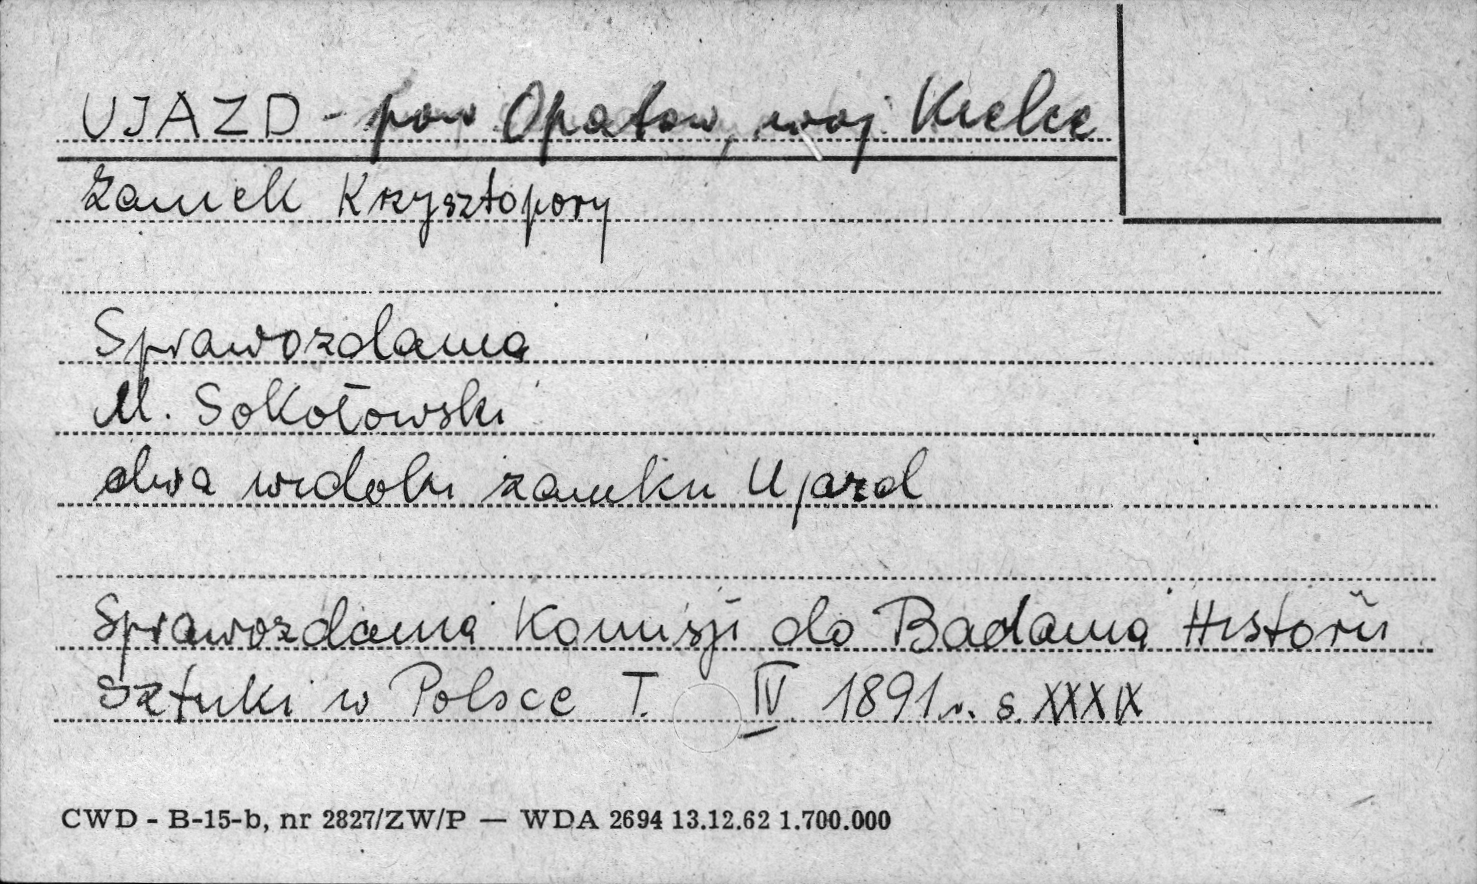 UJAZD - pow Opatow, woj Kielce
Zamek Krzysztopory
Sprawozdania
M. Sokołowski
dwa widoki zamku Ujazd
Sprawozdania Komisji do Badania Historii
Sztuki w Polsce T. IV. 1891 r. s. XXXIX
CWD - B-15-b, nr 2827/ZW/P — WDA 2694 13.12.62 1.700.000